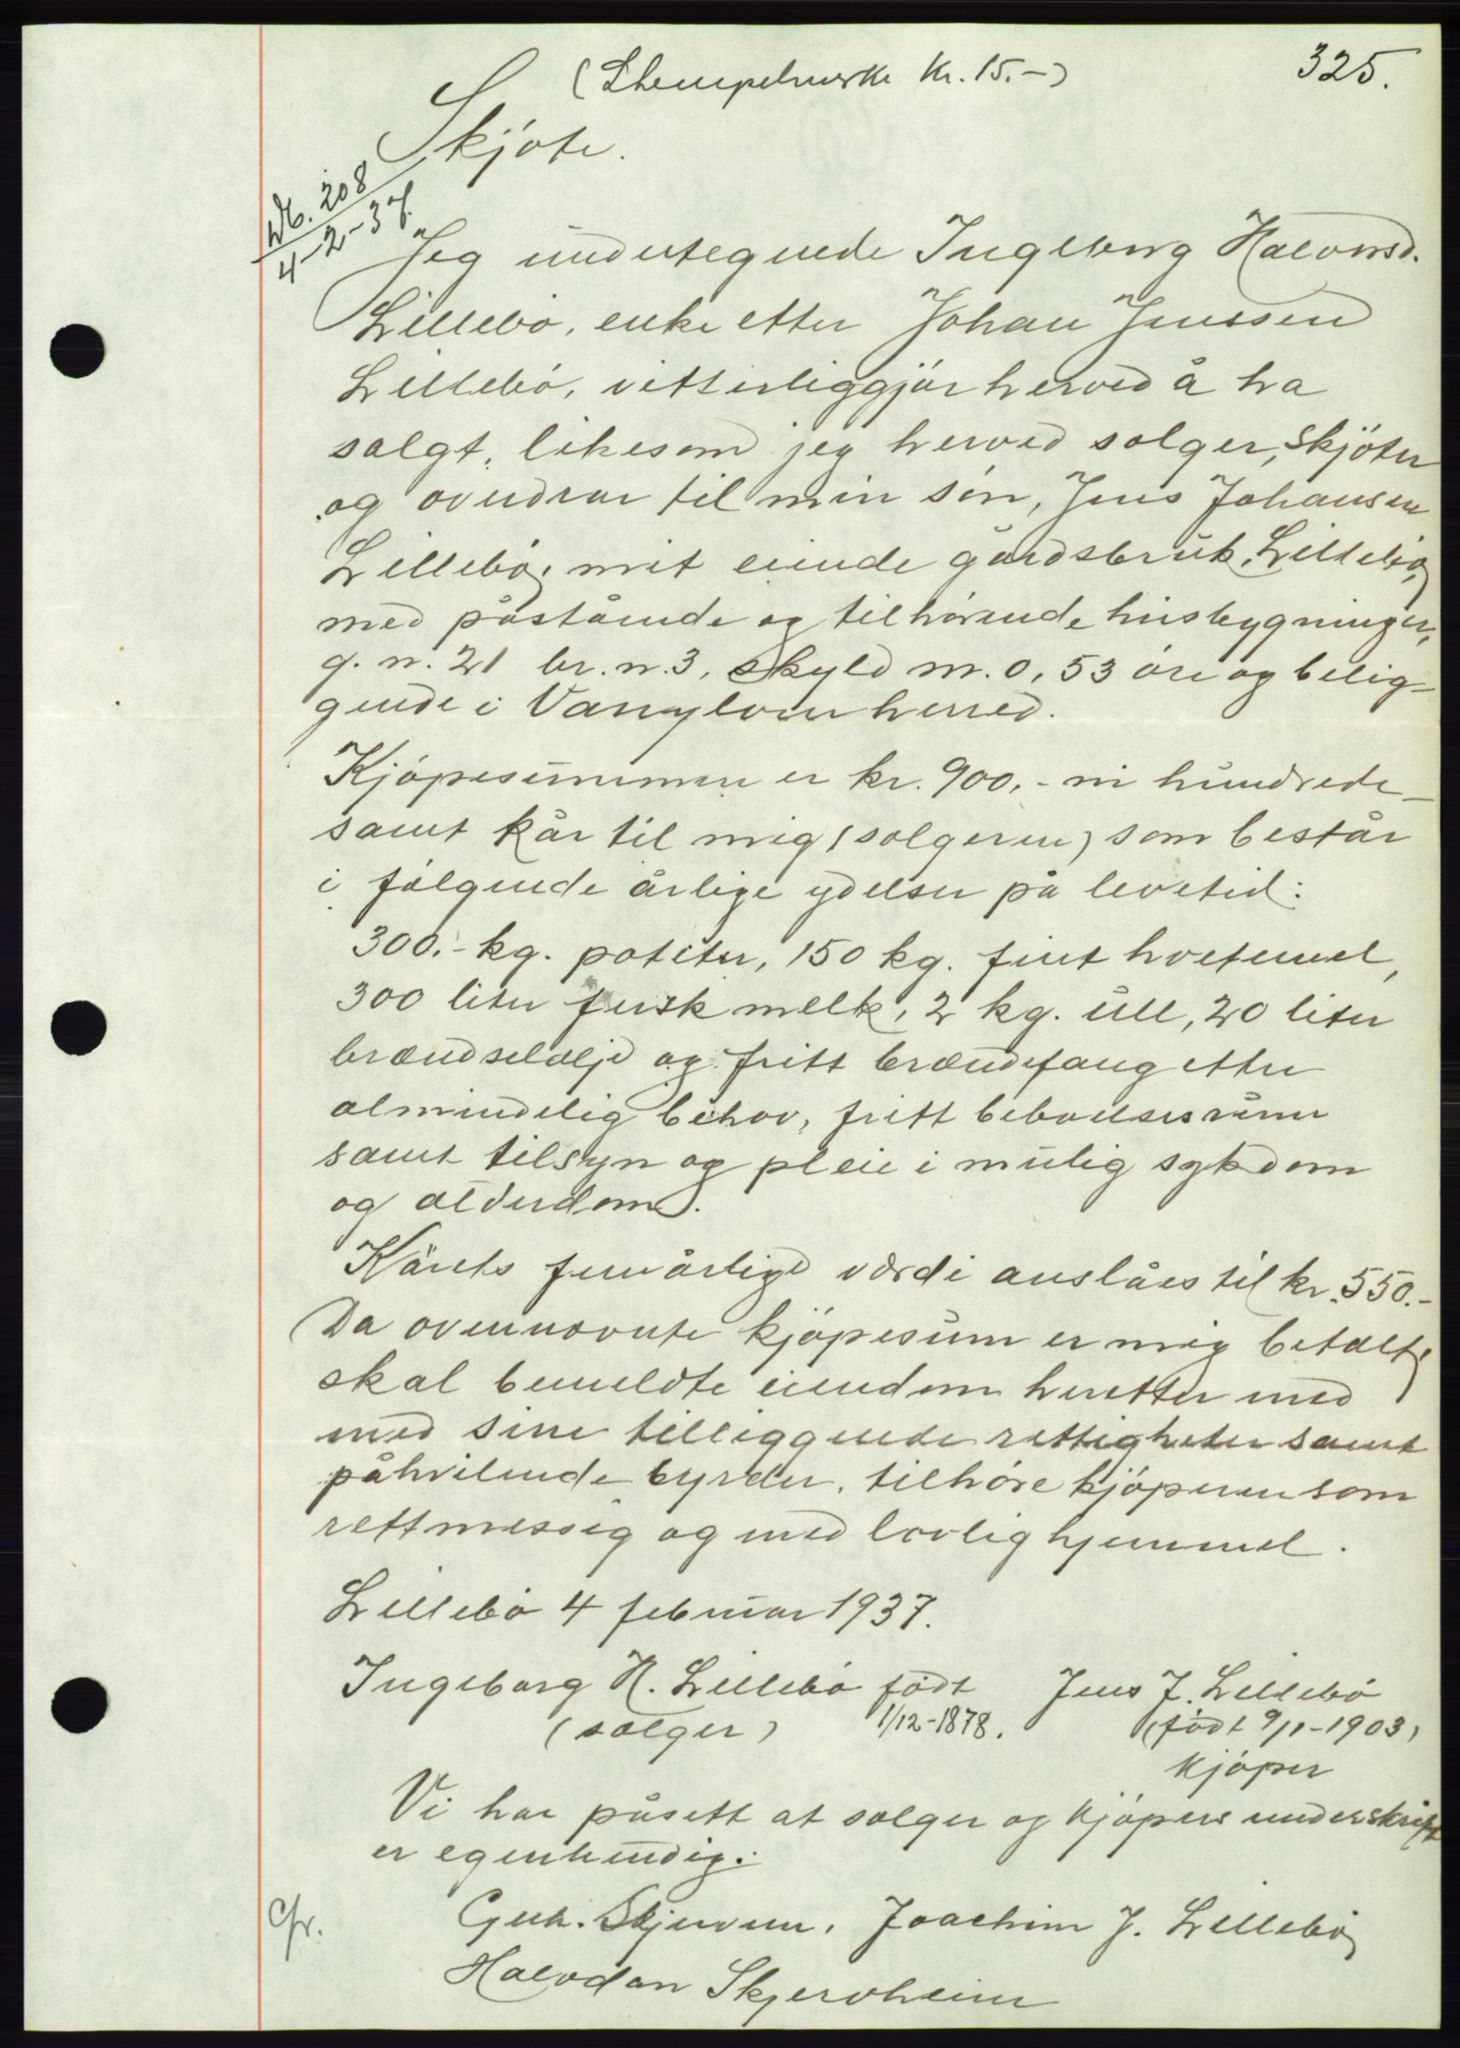 325.
(Stempelmerke kr. 15.-)
Skjøte.
Nb. 208
4-2-37.
Jeg undertegnede Ingeborg Halvorsd.
Lillebø, enke etter Johan Jenssen
Lillebø, vitterliggjør herved å ha
solgt, likesom jeg herved selger, skjøter
og overdrar til min søn, Jens Johansen
Lillebø, mit eiende gårdsbruk, Lillebø,
med påstående og tilhørende husbygninger,
g. n. 21 br. n. 3, skyld m. 0,53 øre og belig-
gende i Vanylven herred.
Kjøpesummen er kr. 900.- ni hundrede -
samt kår til mig (selgeren) som består
i følgende årlige ydelser på levetid:
300.- kg. poteter, 150 kg. fint hvetemel,
300 liter fersk melk, 2 kg. ull, 20 liter
brændselolje og fritt brændefang etter
almindelig behov, fritt beboelsesrum
samt tilsyn og pleie i mulig sykdom
og alderdom.
Kårets femårlige værdi anslåes til kr. 550.-
Da ovennevnte kjøpesum er mig betalt,
skal bemeldte eiendom heretter med
med sine tilliggende rettigheter samt
påhvilende byrder, tilhøre kjøperen som
rettmessig og med lovlig hjemmel.
Lillebø 4 februar 1937.
Ingeborg H. Lillebø født Jens J. Lillebø
(selger) 1/12-1878. (født 9/1-1903)
kjøper
Vi har påsett at selger og kjøpers underskrift
er egenhendig:
Skjerven, Joachim J. Lillebø
Halvdan Skjervheim
Cfr.